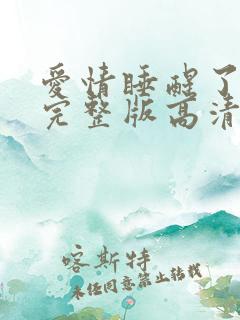 愛情睡醒了
完整版高清
喀斯特
未经同意禁止转载